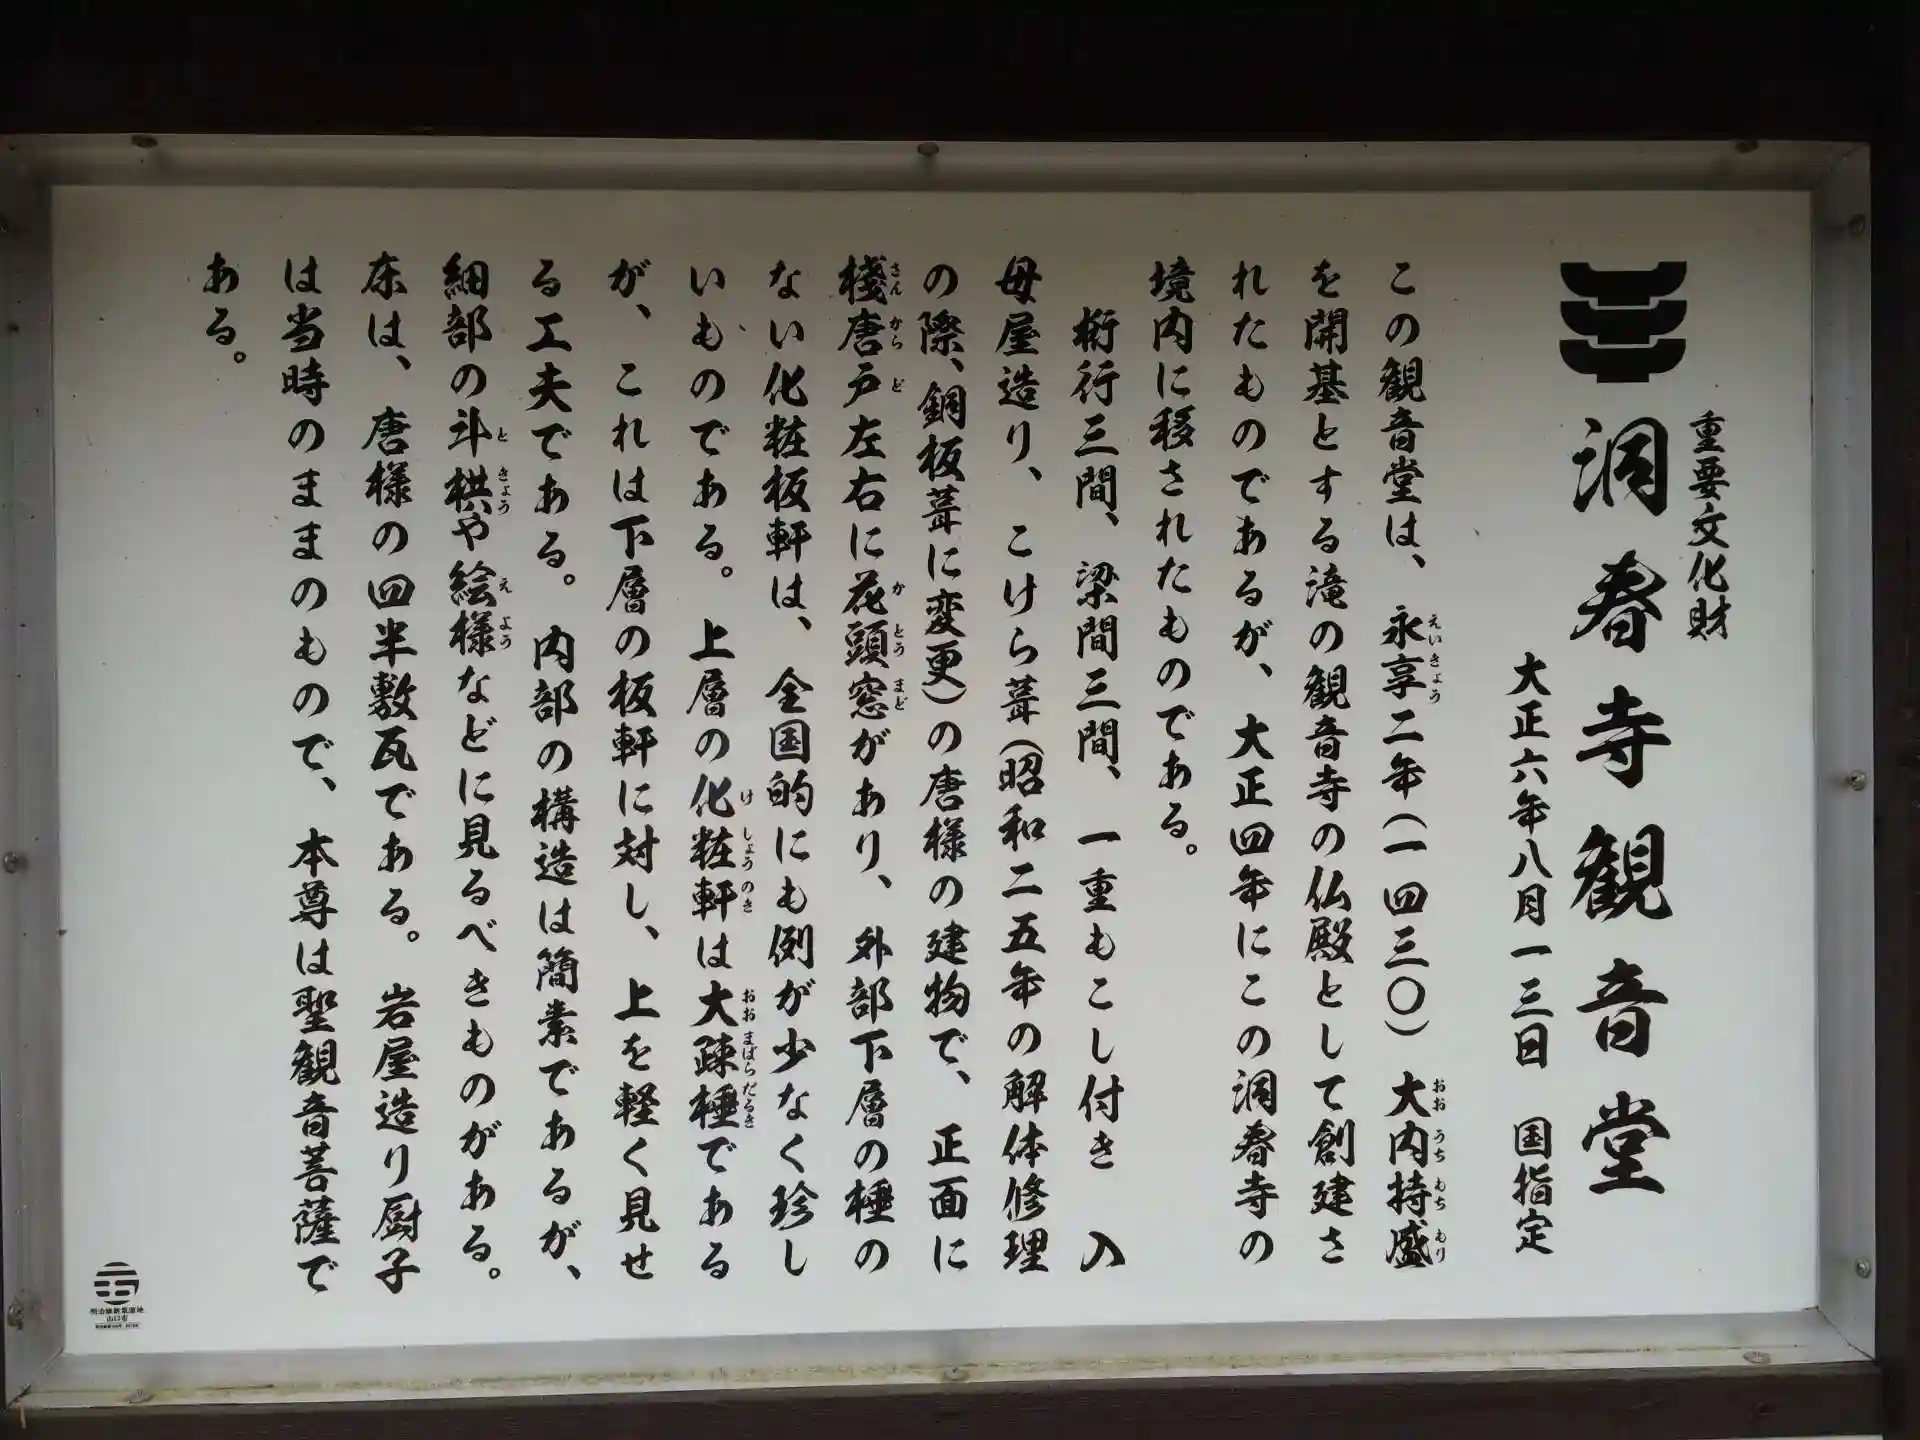 重要文化財
洞春寺観音堂
大正六年八月一三日　国指定
この観音堂は、永享二年（一四三〇）大内持盛
を開基とする滝の観音寺の仏殿として創建さ
れたものであるが、大正四年にこの洞春寺の
境内に移されたものである。
桁行三間、梁間三間、一重もこし付き　入
母屋造り、こけら葺（昭和二五年の解体修理
の際、銅板葺に変更）の唐様の建物で、正面に
棧唐戸左右に花頭窓があり、外部下層の棰の
ない化粧板軒は、全国的にも例が少なく珍し
いものである。上層の化粧軒は大疎棰である
が、これは下層の板軒に対し、上を軽く見せ
る工夫である。内部の構造は簡素であるが、
細部の斗栱や絵様などに見るべきものがある。
床は、唐様の四半敷瓦である。岩屋造り厨子
は当時のままのもので、本尊は聖観音菩薩で
ある。
明治維新策源地
山口市